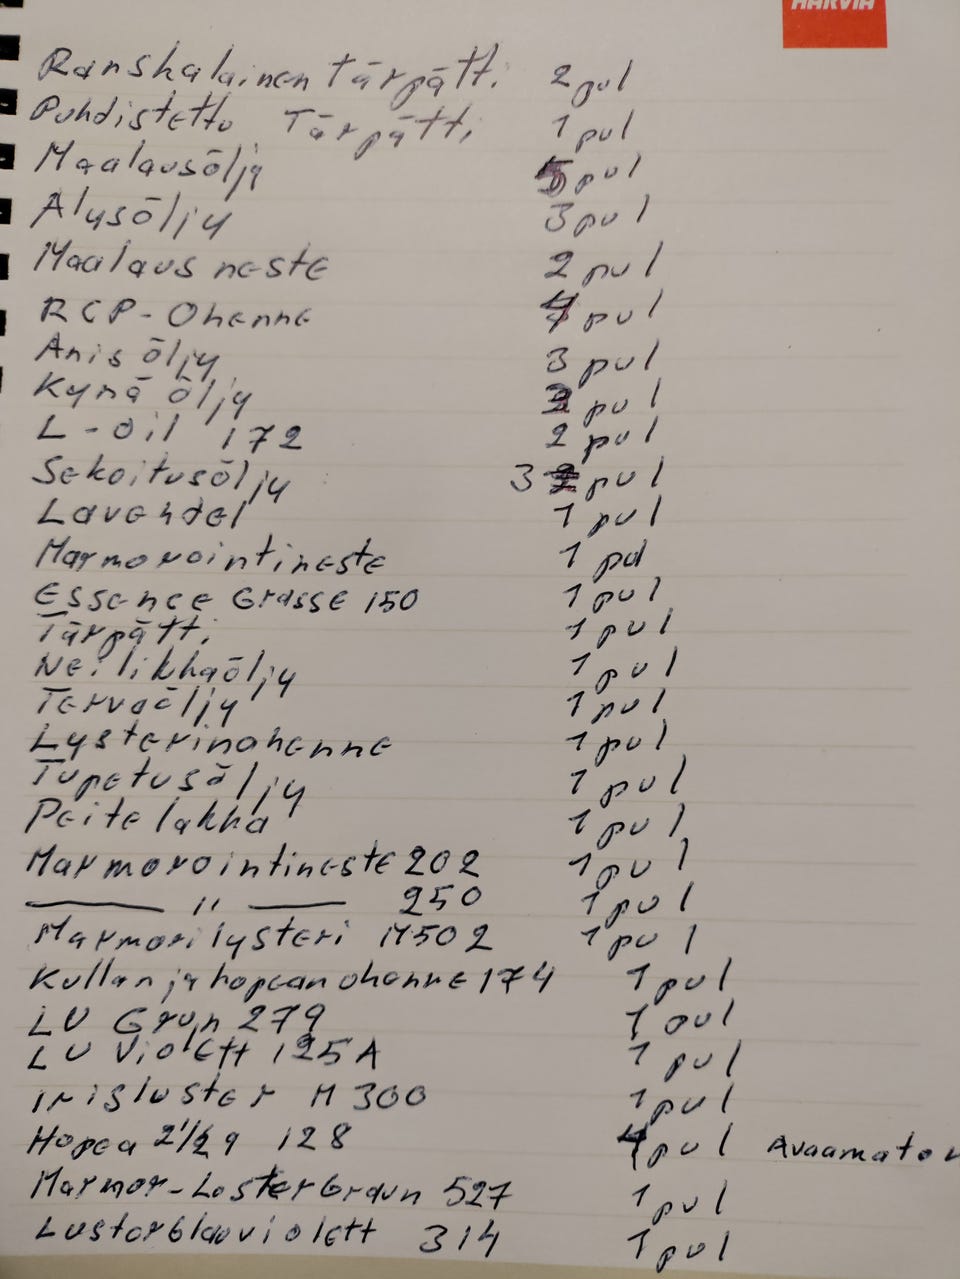 HARVIA
Ranskalainen tärpätti 2 pul
Puhdistettu Tärpätti 1 pul
Maalausöljy 5 pul
Alusöljy 3 pul
Maalaus neste 2 pul
RCP-Ohenne 4 pul
Anis öljy 3 pul
Kynä öljy pul
L-oil 172 2 pul
Sekoitusöljy 3 pul
Lavendel 1 pul
Marmorointineste 1 pul
Essence Grasse 150 1 pul
Tärpätti 1 pul
Neilikkaöljy 1 pul
Tervaöljy 1 pul
Lysterinohenne 1 pul
Tupetusöljy 1 pul
Peitelakka 1 pul
Marmorointineste 202 1 pul
—— " —— 250 1 pul
Marmorilysteri M502 1 pul
Kullan ja hopean ohenne 174 1 pul
LU Grun 279 1 pul
LU Violett 125A 1 pul
Irisluster M 300 1 pul
Hopea 2 1/2 g 128 4 pul Avaamaton
Marmor-Losterbraun 527 1 pul
Lustorblauviolett 314 1 pul